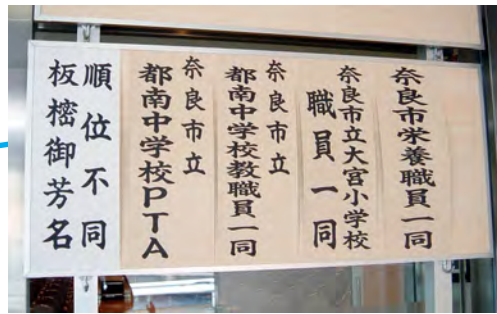 奈良市栄養職員一同
奈良市立大宮小学校
職員一同
奈良市立
都南中学校教職員一同
奈良市立
都南中学校PTA
順位不同
板樒御芳名